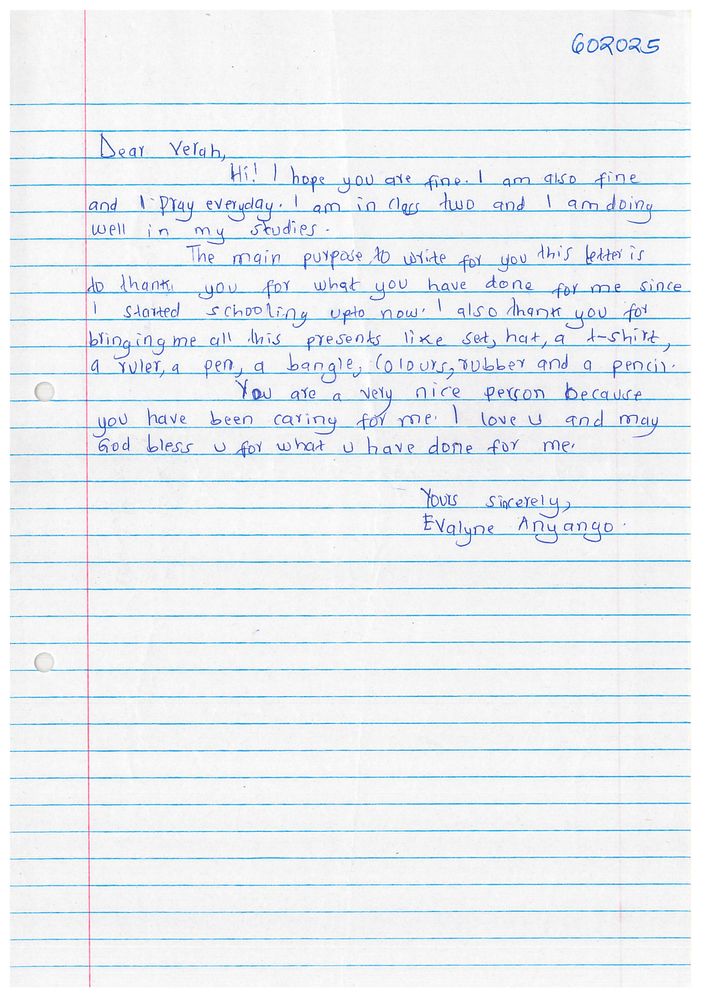 602025
Dear Verah,
Hi! I hope you are fine. I am also fine
and I pray everyday. I am in class two and I am doing
well in my studies.
The main purpose to write for you this letter is
to thank you for what you have done for me since
I started schooling upto now. I also thank you for
bringing me all this presents like set, hat, a t-shirt,
a ruler, a pen, a bangle, colours, rubber and a pencil.
You are a very nice person because
you have been caring for me. I love u and may
God bless u for what u have done for me.
Yours sincerely,
Evalyne Anyango.